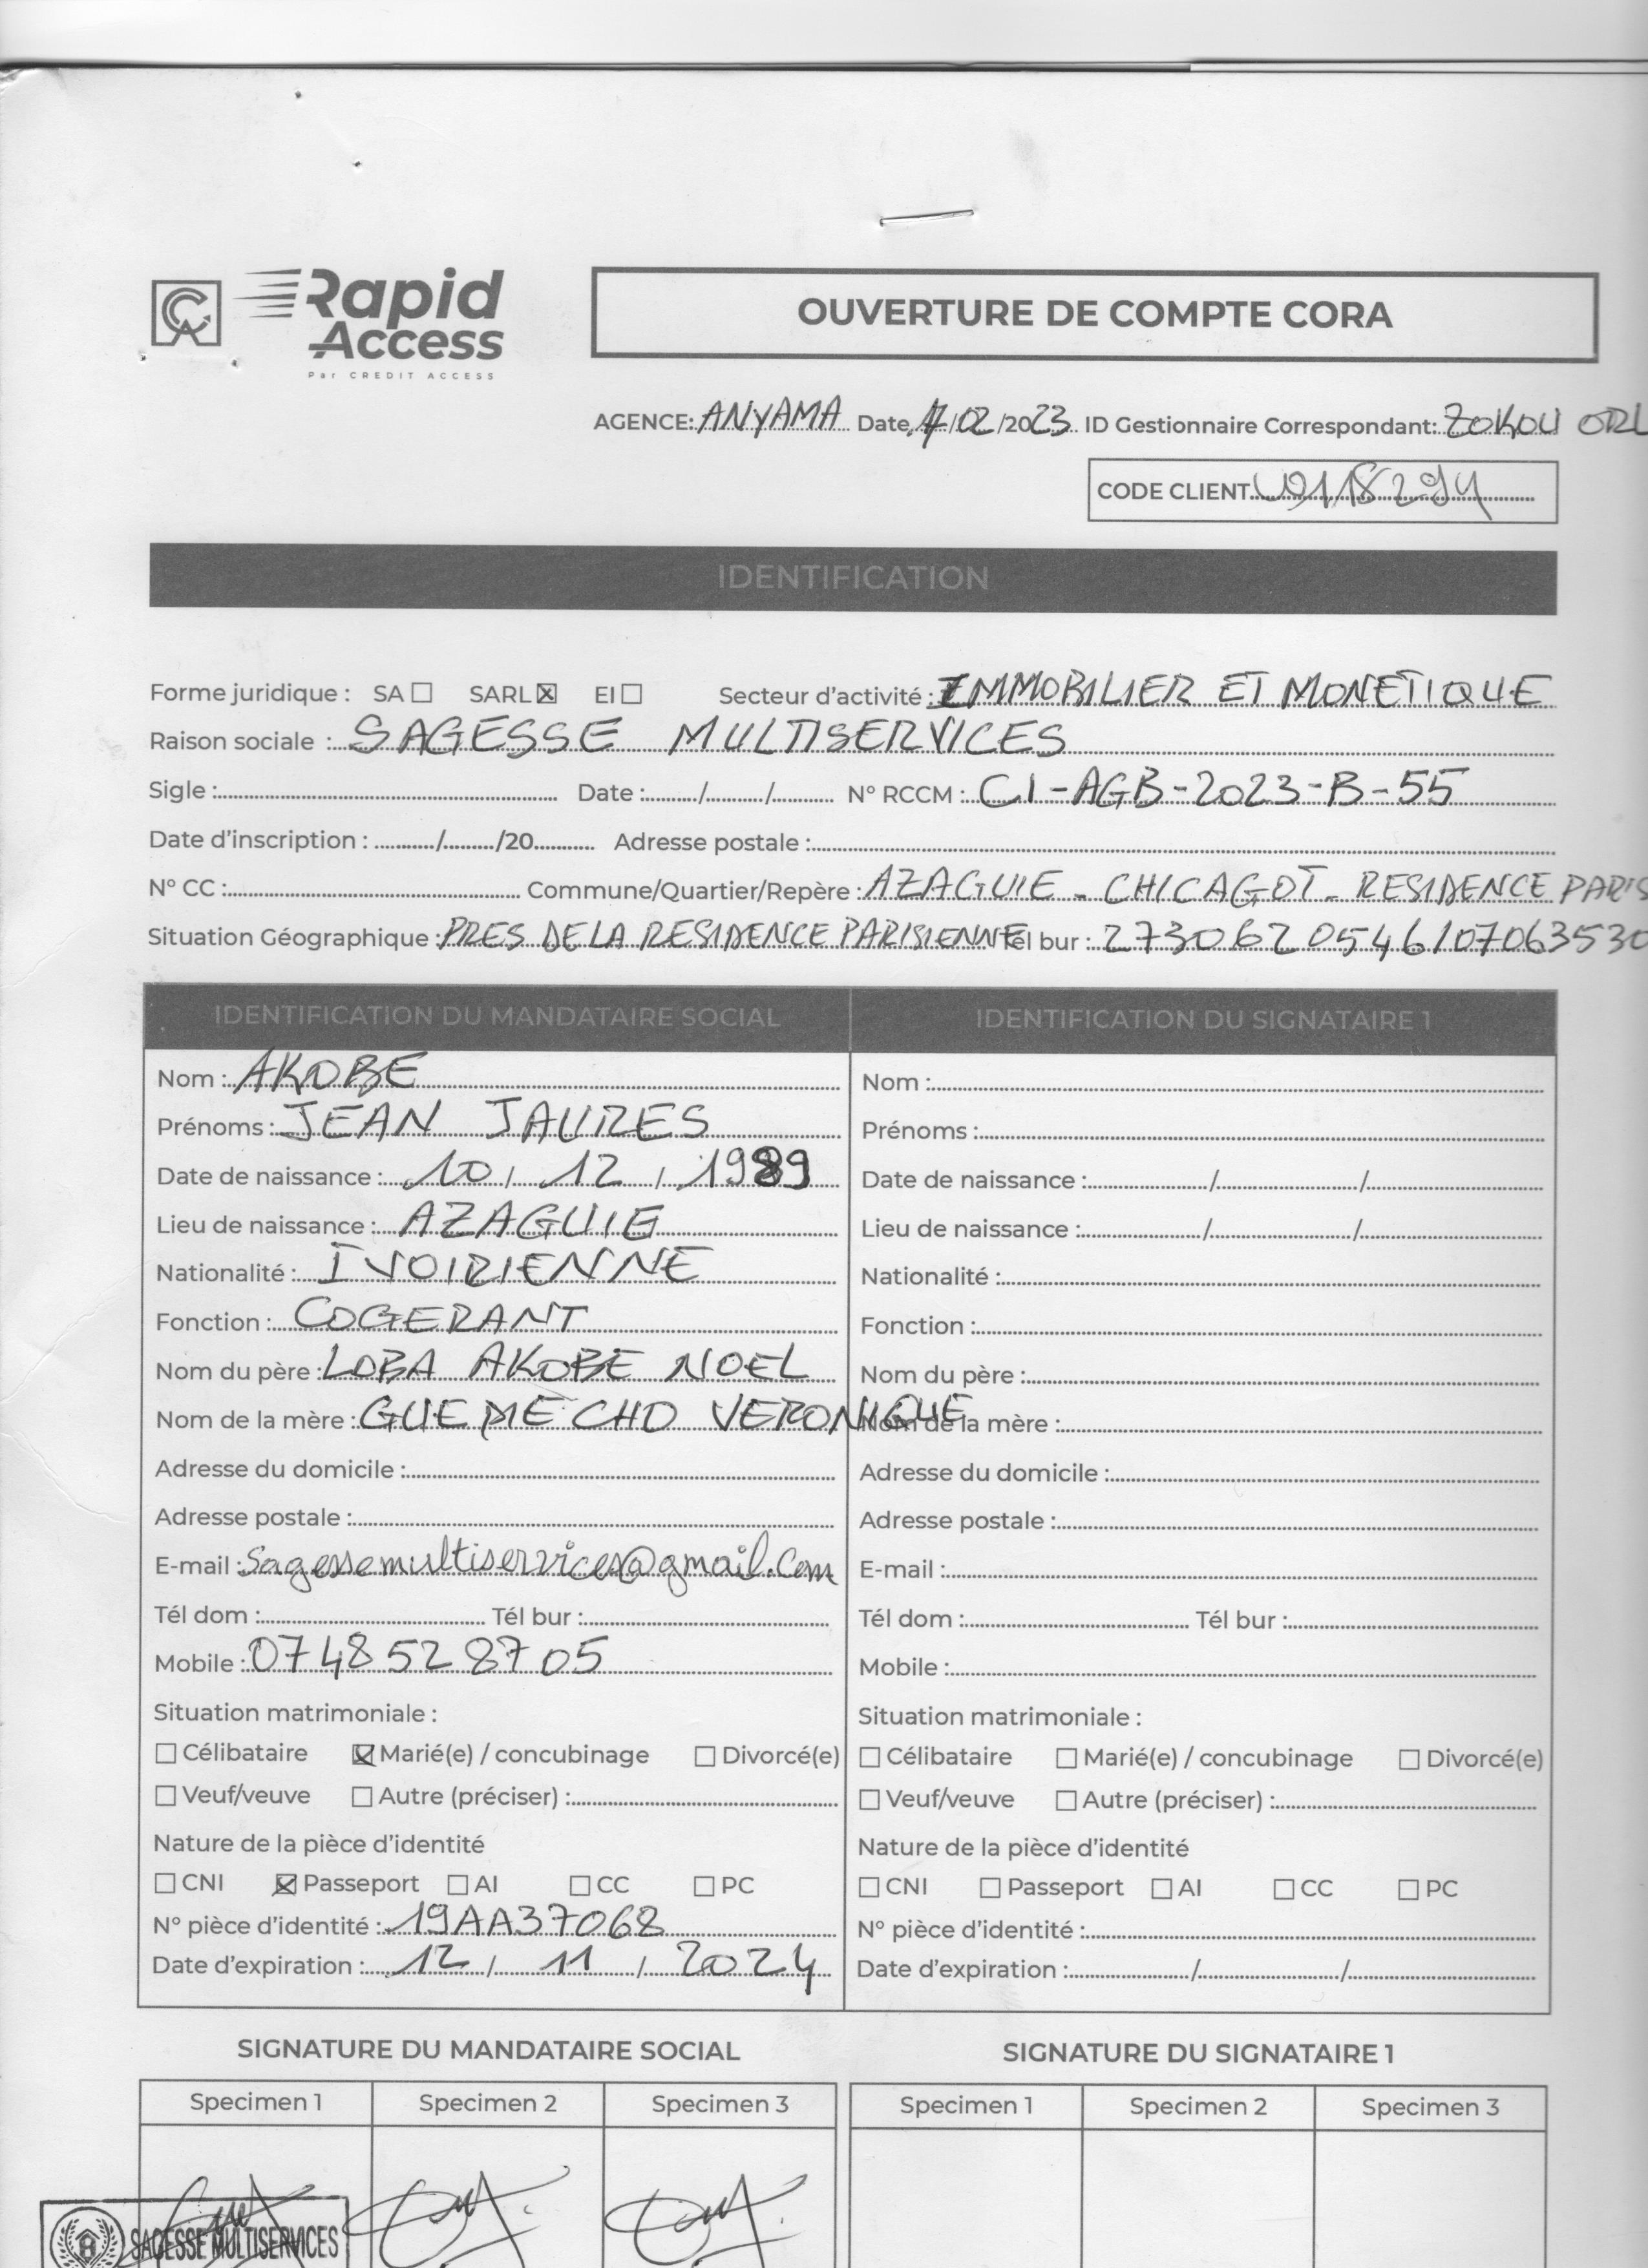 Rapid
Access
Par CREDIT ACCESS
OUVERTURE DE COMPTE CORA
AGENCE: ANYAMA Date 17/02/2023 ID Gestionnaire Correspondant: ZOKOU ORL
CODE CLIENT
IDENTIFICATION
Forme juridique : SA ☐ SARL ☒ EI ☐ Secteur d'activité : IMMOBILIER ET MONETIQUE
Raison sociale : SAGESSE MULTISERVICES
Sigle : Date : / / N° RCCM : CI-AGB-2023-B-55
Date d'inscription : / /20 Adresse postale :
N° CC : Commune/Quartier/Repère : AZAGUIE - CHICAGOT - RESIDENCE PARIS
Situation Géographique : PRES DE LA RESIDENCE PARISIENNE Tél bur : 2730620546/07063530
IDENTIFICATION DU MANDATAIRE SOCIAL
Nom : AKOBE
Prénoms : JEAN JAURES
Date de naissance : 10 / 12 / 1989
Lieu de naissance : AZAGUIE
Nationalité : IVOIRIENNE
Fonction : COGERANT
Nom du père : LOBA AKOBE NOEL
Nom de la mère : GUEDIE CHO VERONIQUE
Adresse du domicile :
Adresse postale :
E-mail : sagessemultiservices@gmail.com
Tél dom : Tél bur :
Mobile : 0748528705
Situation matrimoniale :
☐ Célibataire ☒ Marié(e) / concubinage ☐ Divorcé(e)
☐ Veuf/veuve ☐ Autre (préciser) :
Nature de la pièce d'identité
☐ CNI ☒ Passeport ☐ AI ☐ CC ☐ PC
N° pièce d'identité : 19AA37068
Date d'expiration : 12 / 11 / 2024
IDENTIFICATION DU SIGNATAIRE 1
Nom :
Prénoms :
Date de naissance : / /
Lieu de naissance : / /
Nationalité :
Fonction :
Nom du père :
Nom de la mère :
Adresse du domicile :
Adresse postale :
E-mail :
Tél dom : Tél bur :
Mobile :
Situation matrimoniale :
☐ Célibataire ☐ Marié(e) / concubinage ☐ Divorcé(e)
☐ Veuf/veuve ☐ Autre (préciser) :
Nature de la pièce d'identité
☐ CNI ☐ Passeport ☐ AI ☐ CC ☐ PC
N° pièce d'identité :
Date d'expiration : / /
SIGNATURE DU MANDATAIRE SOCIAL
Specimen 1 Specimen 2 Specimen 3
SAGESSE MULTISERVICES
SIGNATURE DU SIGNATAIRE 1
Specimen 1 Specimen 2 Specimen 3